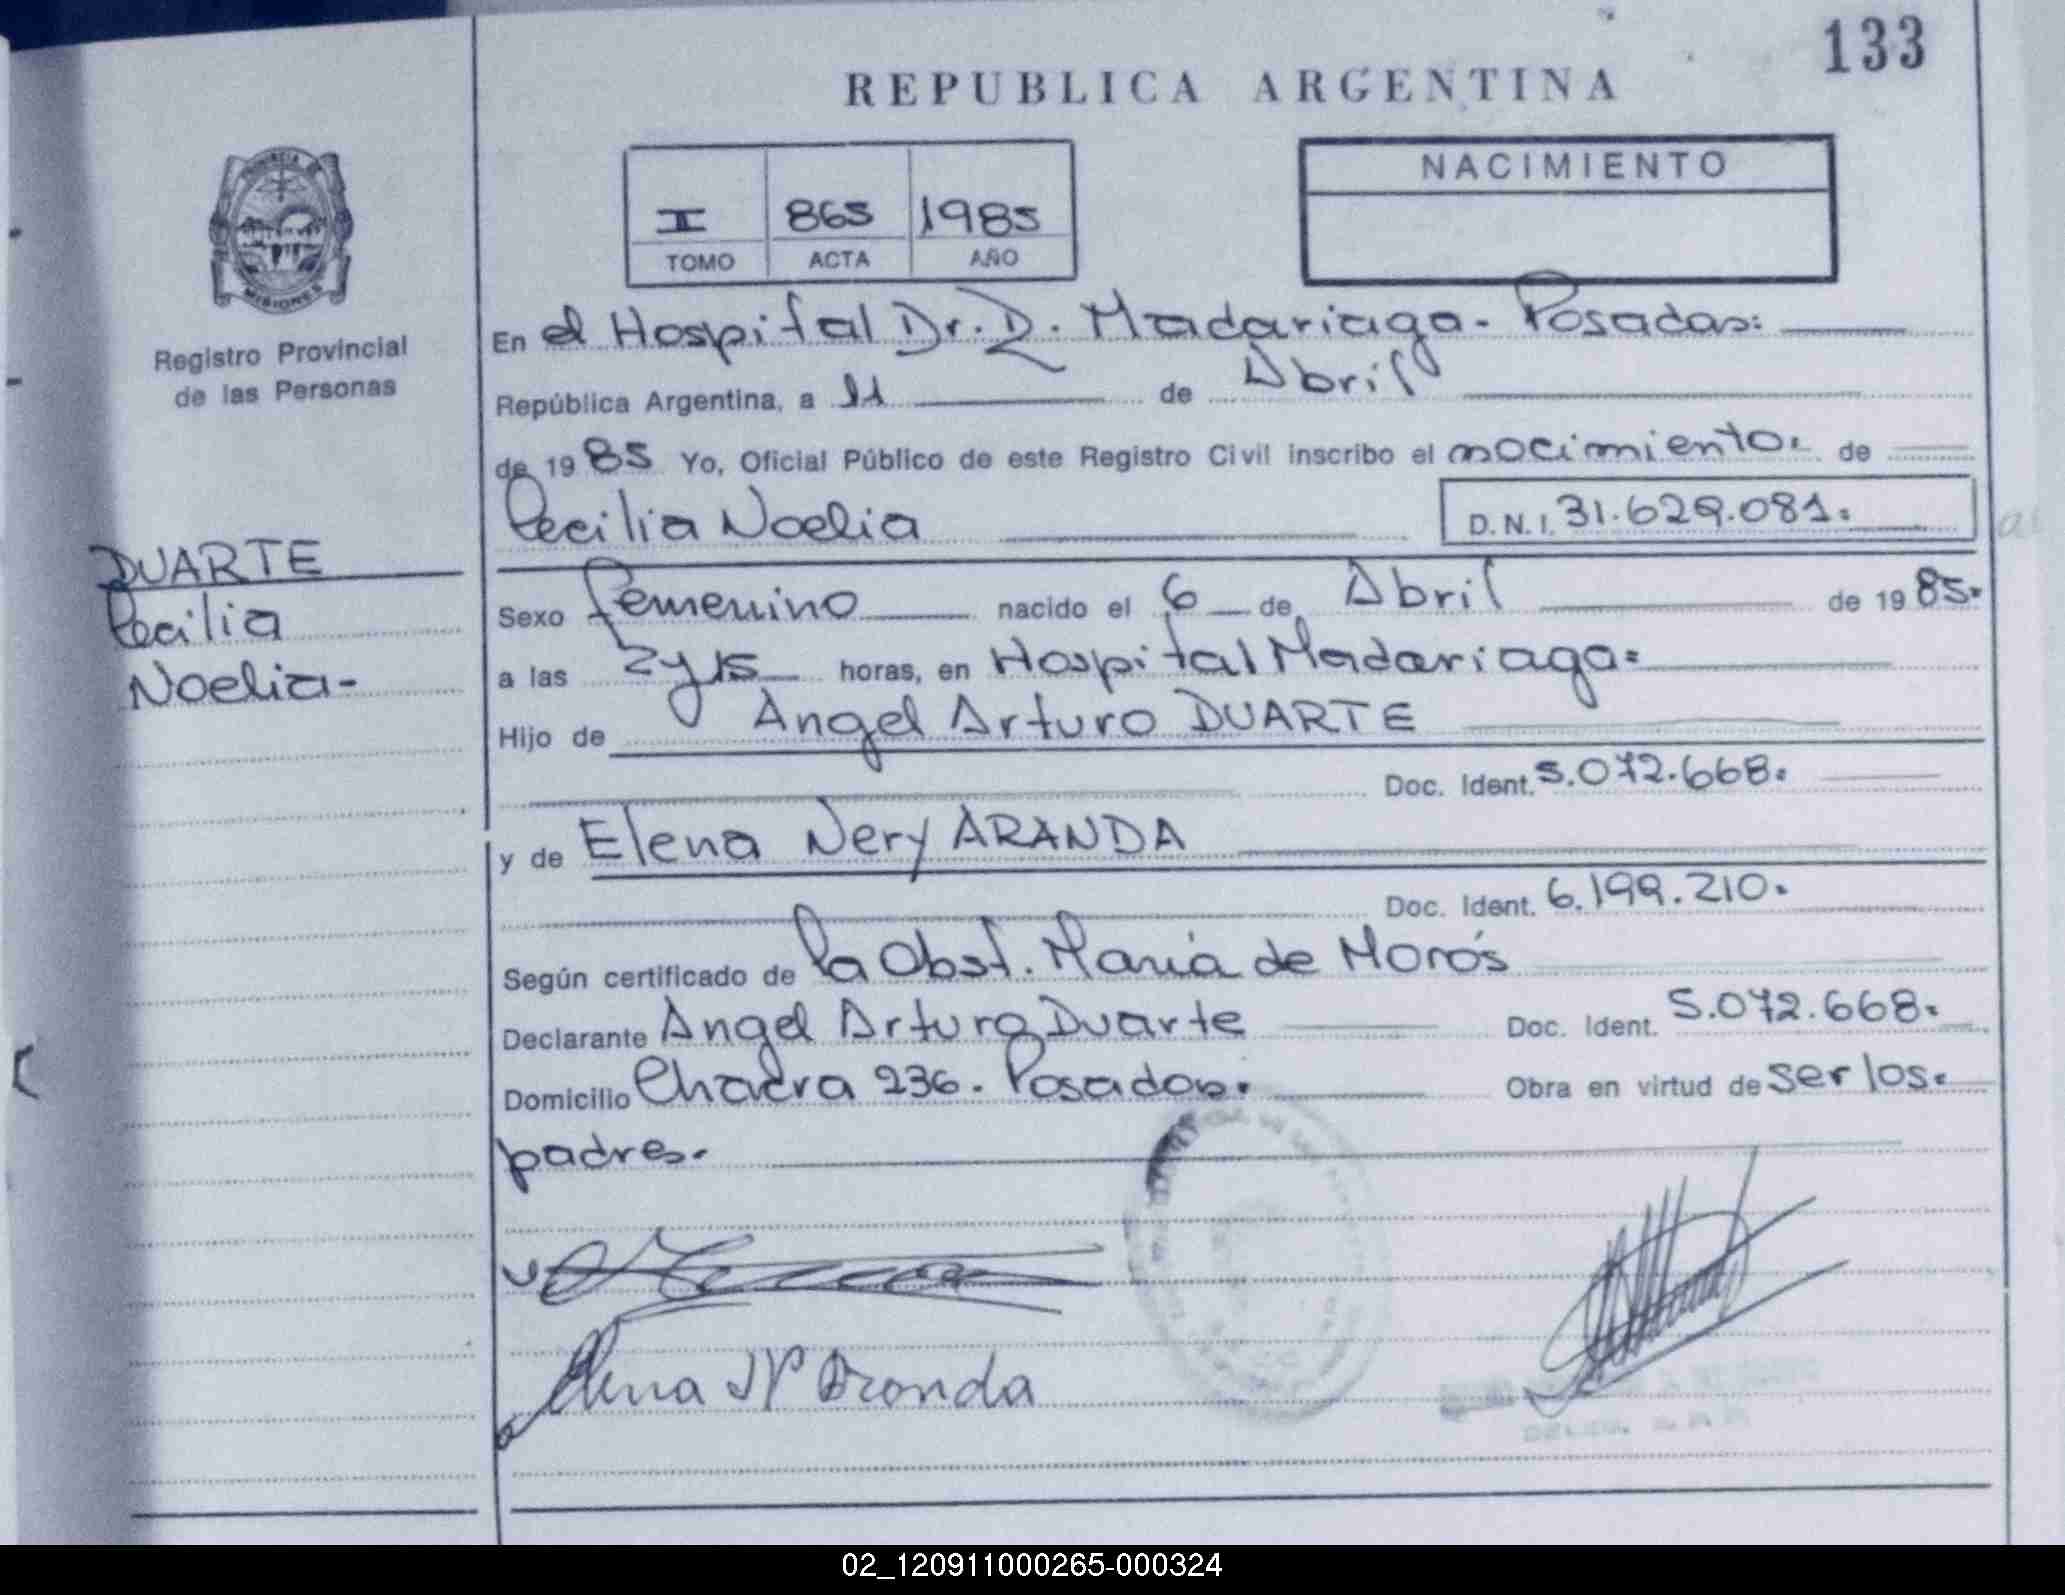 133
REPUBLICA ARGENTINA
PROVINCIA DE
MISIONES
Registro Provincial
de las Personas
II 865 1985
TOMO ACTA AÑO
NACIMIENTO
En el Hospital Dr. R. Madariaga - Posadas:
República Argentina, a 11 de Abril
de 1985 Yo, Oficial Público de este Registro Civil inscribo el nacimiento. de
Cecilia Noelia D.N.I. 31.629.081.
DUARTE
Cecilia
Noelia-
Sexo femenino nacido el 6 de Abril de 1985.
a las 2 y 15 horas, en Hospital Madariaga=
Hijo de Angel Arturo DUARTE
Doc. Ident. 5.072.668.
y de Elena Nery ARANDA
Doc. Ident. 6.199.210.
Según certificado de la Obst. María de Morós
Declarante Angel Arturo Duarte Doc. Ident. 5.072.668.
Domicilio Chacra 236. Posadas. Obra en virtud de ser los.
padres.
Elena N Aranda
02_120911000265-000324